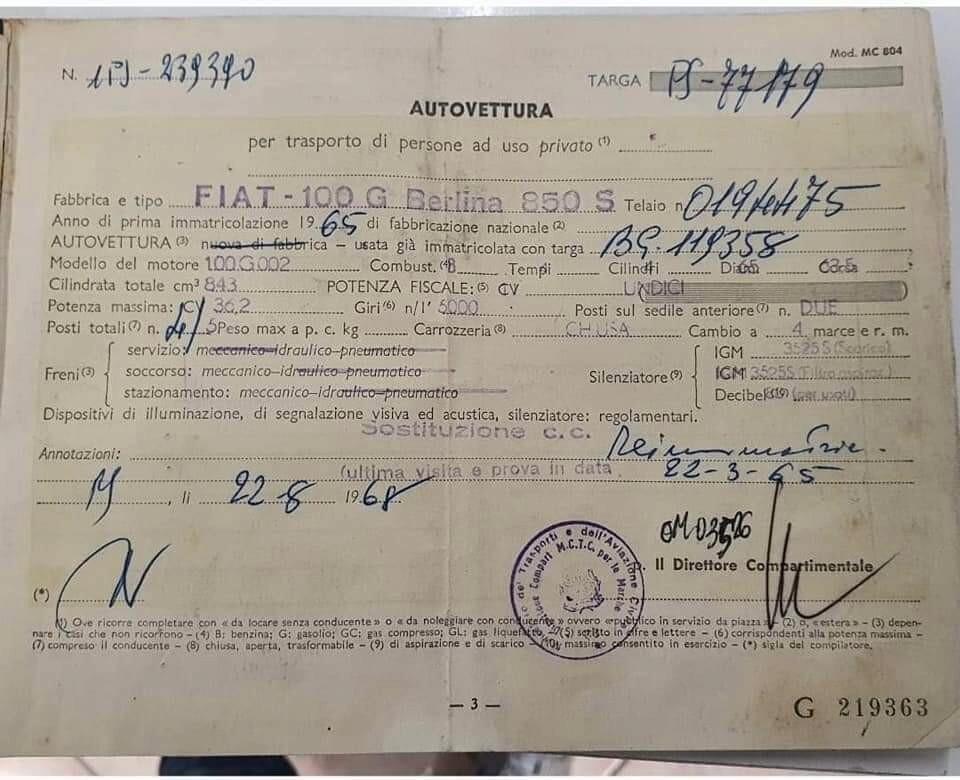 Mod. MC 804
N. 239390
TARGA PS-77179
AUTOVETTURA
per trasporto di persone ad uso privato (1)
Fabbrica e tipo FIAT-100 G Berlina 850 S Telaio n.
Anno di prima immatricolazione 19 65 di fabbricazione nazionale (2)
AUTOVETTURA (3) nuova di fabbrica – usata già immatricolata con targa BG. 119358
Modello del motore 100.G.002 Combust. (4) B Tempi Cilindri Diam. 65 Corsa 63.5
Cilindrata totale cm³ 843 POTENZA FISCALE: (5) CV UNDICI
Potenza massima: CV 36,2 Giri (6) n/1' 5000 Posti sul sedile anteriore (7) n. DUE
Posti totali (7) n. Peso max a p. c. kg Carrozzeria (8) CHIUSA Cambio a 4 marce e r. m.
Freni (3) servizio: meccanico-idraulico-pneumatico
soccorso: meccanico-idraulico-pneumatico
stazionamento: meccanico-idraulico-pneumatico
Silenziatore (9) IGM 3525 S (Scarico)
IGM 3525S
Decibel (10)
Dispositivi di illuminazione, di segnalazione visiva ed acustica, silenziatore: regolamentari.
Sostituzione c.c.
Annotazioni:
(ultima visita e prova in data 22-3-65
li 22-8 1968
Il Direttore Compartimentale
(*)
(1) Ove ricorre completare con « da locare senza conducente » o « da noleggiare con conducente » ovvero « pubblico in servizio da piazza » - (2) o, « estera » - (3) depen-
nare i casi che non ricorrono - (4) B; benzina; G: gasolio; GC: gas compresso; GL: gas liquefatto - (5) scritto in cifre e lettere - (6) corrispondenti alla potenza massima -
(7) compreso il conducente - (8) chiusa, aperta, trasformabile - (9) di aspirazione e di scarico - (10) massimo consentito in esercizio - (*) sigla del compilatore.
— 3 —
G 219363